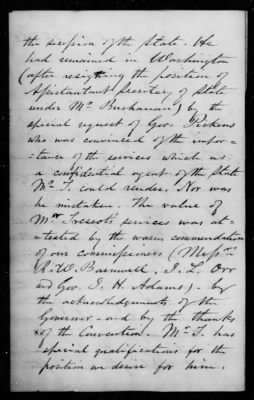 the secession of the State. He
had remained in Washington
(after resigning the position of
Assistant Secretary of State
under Mr. Buchanan) by the
special request of Gov. Pickens
who was convinced of the impor-
tance of the services which as
a confidential agent of the State
Mr. T. could render. Nor was
he mistaken. The value of
Mr. Trescot's services was at-
-tested by the warm commendation
of our commissioners (Messrs.
R. W. Barnwell, J. L. Orr
and Gov. J. H. Adams) - by
the acknowledgements of the
Governor - and by the thanks
of the Convention. Mr. T. has
special qualifications for the
position we desire for him.